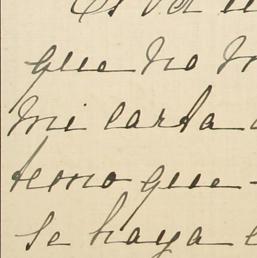 que no
mi carta
temo que
se haya